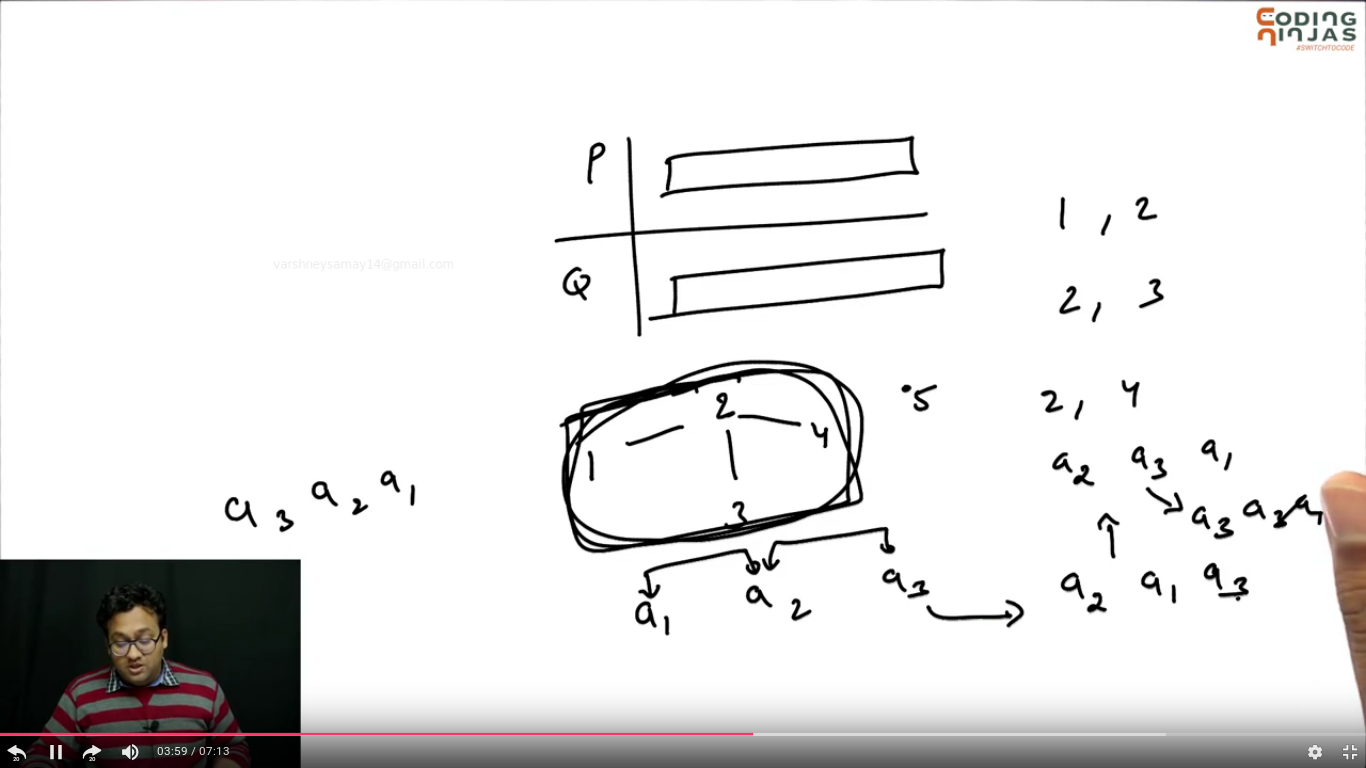 CODING
NINJAS
#SWITCHTOCODE
P
1 , 2
varshneysamay14@gmail.com
Q
2 , 3
2
5
2 , 4
1
4
a2 a3 a1
a3 a2 a1
3
a3 a2 a1
a1 a2 a3
a2 a1 a3
20
20
03:59 / 07:13